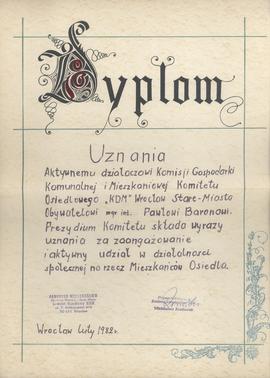 Dyplom
Uznania
Aktywnemu działaczowi Komisji Gospodarki
Komunalnej i Mieszkaniowej Komitetu
Osiedlowego „KDM” Wrocław Stare-Miasto
Obywatelowi mgr inż. Pawłowi Baranowi.
Prezydium Komitetu składa wyrazy
uznania za zaangażowanie
i aktywny udział w działalności
społecznej na rzecz Mieszkańców Osiedla.
Wrocław luty 1982 r.